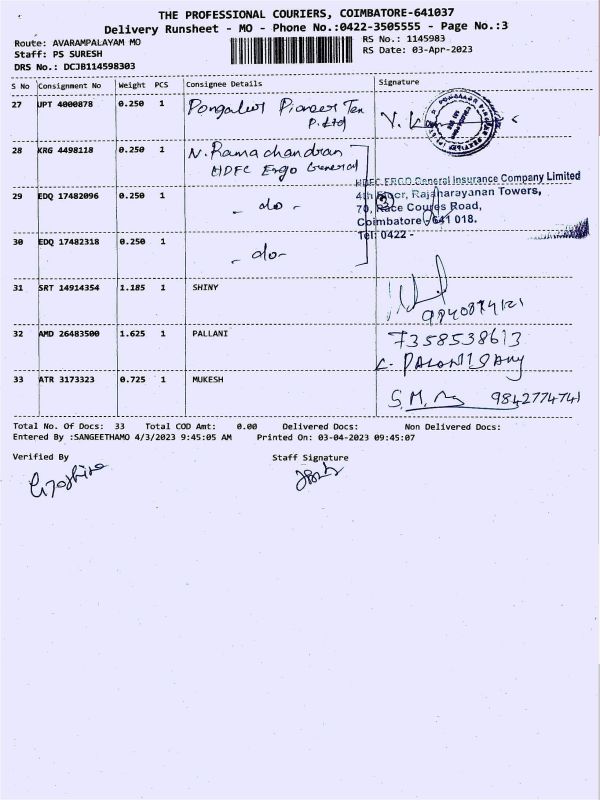 THE PROFESSIONAL COURIERS, COIMBATORE-641037
Delivery Runsheet - MO - Phone No.:0422-3505555 - Page No.:3
Route: AVARAMPALAYAM MO
RS No.: 1145983
Staff: PS SURESH
RS Date: 03-Apr-2023
DRS No.: DCJB114598303
S No Consignment No Weight PCS Consignee Details Signature
27 UPT 4000878 0.250 1 Pongalur Pioneer Tex
P. Ltd
28 KRG 4498118 0.250 1 N. Ramachandran
HDFC Ergo General
HDFC ERGO General Insurance Company Limited
29 EDQ 17482096 0.250 1 - do -
4th Floor, Rajanarayanan Towers,
70, Race Course Road,
Coimbatore - 641 018.
Tel: 0422 -
30 EDQ 17482318 0.250 1 - do -
31 SRT 14914354 1.185 1 SHINY
32 AMD 26483500 1.625 1 PALLANI 7358538613
33 ATR 3173323 0.725 1 MUKESH
9842774741
Total No. Of Docs: 33 Total COD Amt: 0.00 Delivered Docs: Non Delivered Docs:
Entered By :SANGEETHAMO 4/3/2023 9:45:05 AM Printed On: 03-04-2023 09:45:07
Verified By Staff Signature